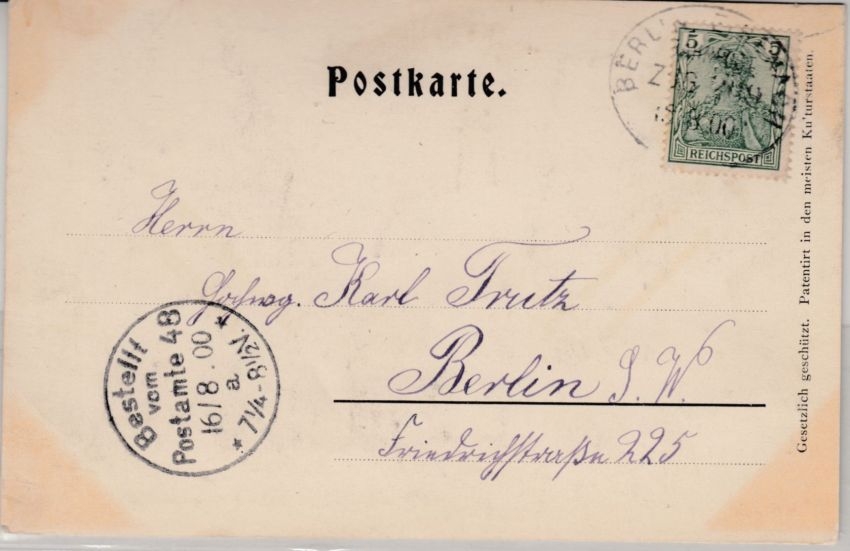 Postkarte.
BERLIN
ZUG
15 8 00
5 5
REICHSPOST
Herrn
Hochwg. Karl Trutz
Berlin S.W.
Friedrichstraße 225
Bestellt
vom
Postamte 48
16/8.00
a
* 7¼-8½N. *
Gesetzlich geschützt. Patentirt in den meisten Kulturstaaten.